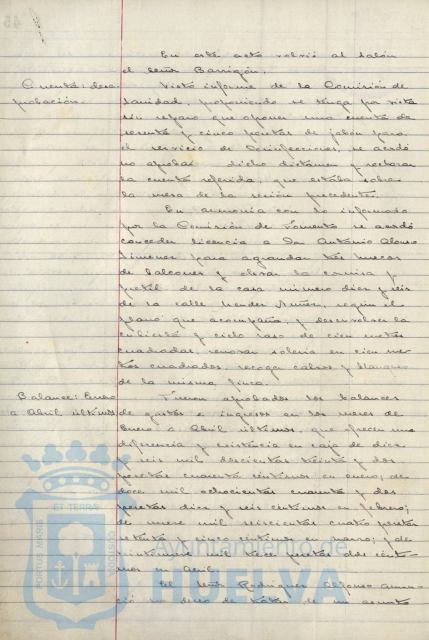 En este acto volvió al salón
el señor Barrigón.
Cuenta: desa- Visto informe de la Comisión de
probación. Sanidad, proponiendo se tenga por vista
sin reparo que oponer una cuenta de
sesenta y cinco pesetas de jabón para
el servicio de Desinfecciones, se acordó
no aprobar dicho dictamen y rechazar
la cuenta referida, que estaba sobre
la mesa de la sesión precedente.
En armonía con lo informado
por la Comisión de Fomento se acordó
conceder licencia a Don Antonio Alonso
Jimenez para agrandar tres huecos
de balcones y obrar la cornisa y
pretil de la casa número diez y seis
de la calle Mendez Nuñez, según el
plano que acompaña, y desenvolver la
cubierta y cielo raso de cien metros
cuadrados, renovar solería en cien me-
tros cuadrados, recoger caizos y blanqueo
de la misma finca.
Balance: Enero Fueron aprobados los balances
a Abril últimos de gastos e ingresos en los meses de
Enero a Abril últimos, que ofrecen una
diferencia y existencia en caja de diez
y seis mil doscientas treinta y dos
pesetas cuarenta céntimos en enero; de
doce mil ochocientas cuarenta y dos
pesetas diez y seis céntimos en febrero;
de nueve mil seiscientas cuatro pesetas
setenta y cinco céntimos marzo; y de
mil pesetas dos cénti-
mos en Abril.
El señor Rodriguez Alfonso anun-
ció su deseo de tratar de un asunto
PORTUS MARIS ET TERRAE CUSTODIA
Ayuntamiento de
HUELVA